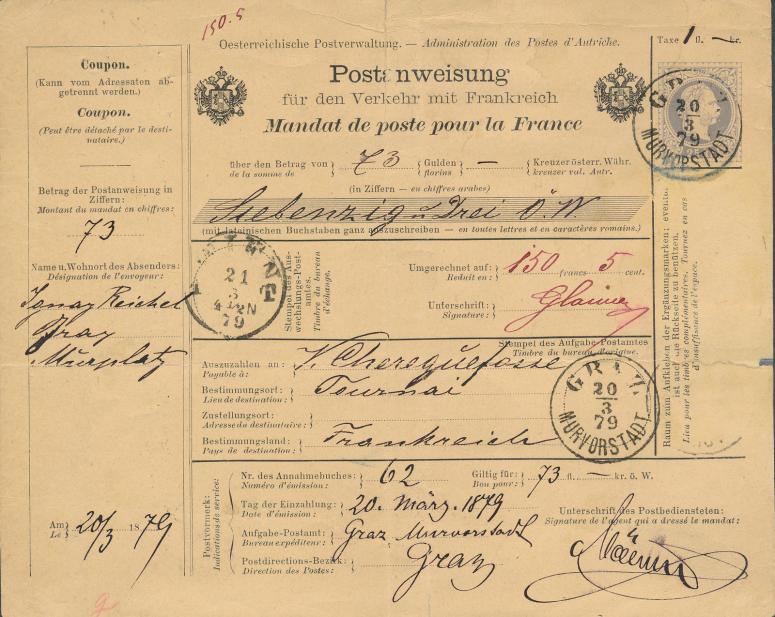 150.5
Oesterreichische Postverwaltung. — Administration des Postes d'Autriche.
Taxe 1 fl. — kr.
Coupon.
(Kann vom Adressaten abgetrennt werden.)
Coupon.
(Peut être détaché par le destinataire.)
Betrag der Postanweisung in Ziffern:
Montant du mandat en chiffres:
73
Name u. Wohnort des Absenders:
Désignation de l'envoyeur:
Ignaz Reichel
Graz
Murplatz
Am
Le 20/3 1879
Postanweisung
für den Verkehr mit Frankreich
Mandat de poste pour la France
über den Betrag von 73 Gulden — Kreuzer österr. Währ.
de la somme de florins kreuzer val. Autr.
(in Ziffern — en chiffres arabes)
Siebenzig u Drei Ö.W.
(mit lateinischen Buchstaben ganz auszuschreiben — en toutes lettres et en caractères romains.)
21
3
79
Stempel des Auswechslungs-Postamtes.
Timbre du bureau d'échange.
Umgerechnet auf: 150 francs 5 cent.
Reduit en:
Unterschrift:
Signature:
Stempel des Aufgabe-Postamtes
Timbre du bureau d'origine.
Auszuzahlen an: V. Cherequefosse
Payable à:
Bestimmungsort: Tournai
Lieu de destination:
Zustellungsort:
Adresse du destinataire:
Bestimmungsland: Frankreich
Pays de destination:
GRAZ
20
3
79
MURVORSTADT
GRAZ
20
3
79
MURVORSTADT
Raum zum Aufkleben der Ergänzungsmarken; eventuell
ist auch die Rückseite zu benützen.
Lieu pour les timbres complémentaires. Tournez en cas
d'insuffisence de l'espace.
Postvormerk:
Indications de service:
Nr. des Annahmebuches: 62 Giltig für: 73 fl. — kr. ö. W.
Numéro d'émission: Bon pour:
Tag der Einzahlung: 20. März. 1879
Date d'émission:
Aufgabe-Postamt: Graz Murvorstadt
Bureau expéditeur:
Postdirections-Bezirk: Graz
Direction des Postes:
Unterschrift des Postbediensteten:
Signature de l'agent qui a dressé le mandat: